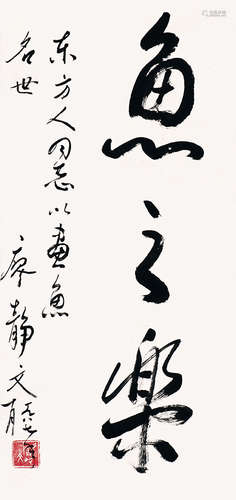 魚之樂
东方人同志以畫魚
名世
廖静文题